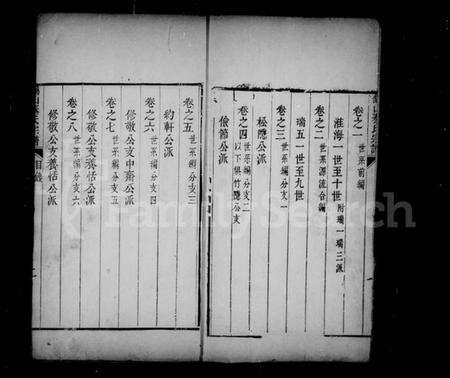 卷之一 世系前編
莊海一世至十世 附瑞一瑞三派
卷之二 世系源流合編
瑞五一世至九世
卷之三 世系編分支一
松隱公派
卷之四 世系編分支二 以下與竹隱公支
儉節公派
卷之五 世系編分支三
約軒公派
卷之六 世系編分支四
修敬公支中齋公派
卷之七 世系編分支五
修敬公支養恬公派
卷之八 世系編分支六
修敬公支養恬公派
FamilySearch